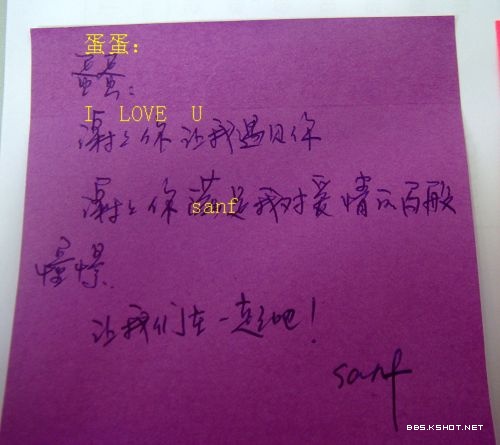 蛋蛋：
蛋蛋：
I LOVE U
谢谢你让我遇见你
谢谢你满足我对爱情的百般
sanf
憧憬.
让我们在一起吧！
sanf
BBS.KSHOT.NET